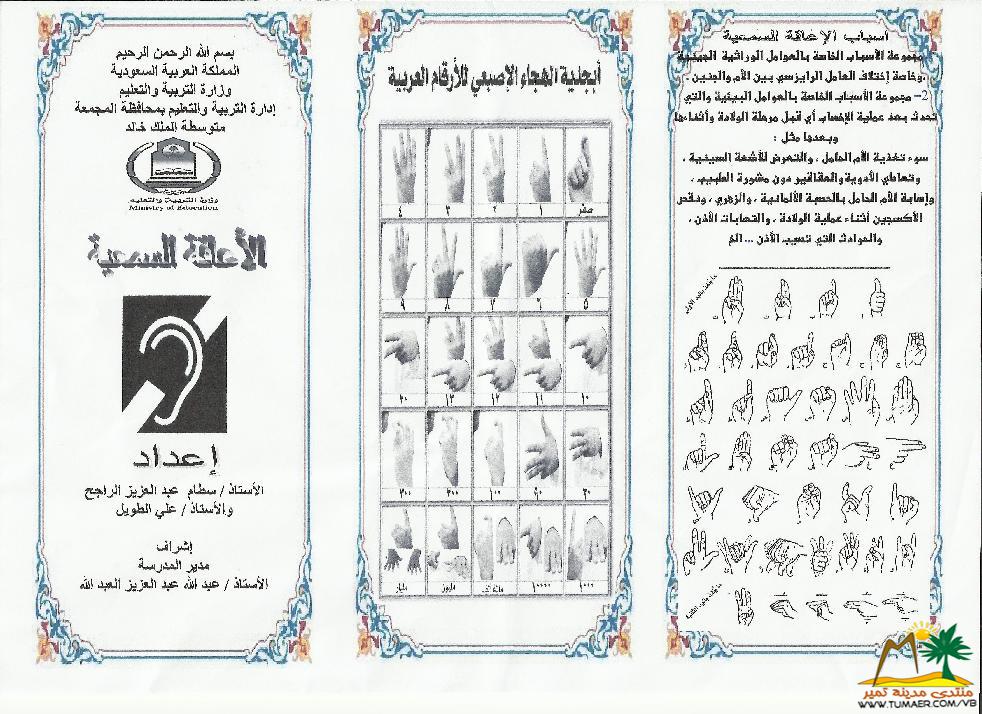 بسم الله الرحمن الرحيم
المملكة العربية السعودية
وزارة التربية والتعليم
إدارة التربية والتعليم بمحافظة المجمعة
متوسطة الملك خالد
وزارة التربية والتعليم
Ministry of Education
الأعاقة السمعية
إعداد
الأستاذ / سطام عبد العزيز الراجح
والأستاذ / علي الطويل
إشراف
مدير المدرسة
الأستاذ / عبد الله عبد العزيز العبد الله
أبجدية الهجاء الإصبعي للأرقام العربية
صفر ١ ٢ ٣ ٤
٥ ٦ ٧ ٨ ٩
١٠ ١١ ١٢ ١٣ ٢٠
٣٠ ٩٠ ١٠٠ ٢٠٠ ٣٠٠
١٠٠٠ ١٠٠٠٠ مائة الف مليون مليار
أسباب الإعاقة السمعية
مجموعة الأسباب الخاصة بالعوامل الوراثية الجينية
،وخاصة إختلاف العامل الرايزسي بين الأم والجنين .
2- مجموعة الأسباب الخاصة بالعوامل البيئية والتي
تحدث بعد عملية الإخصاب أي قبل مرحلة الولادة وأثناءها
وبعدها مثل :
سوء تغذية الأم الحامل ، والتعرض للأشعة السينية ،
وتعاطي الأدوية والعقاقير دون مشورة الطبيب ،
وإصابة الأم الحامل بالحصبة الألمانية ، والزهري ، ونقص
الأكسجين أثناء عملية الولادة ، والتهابات الأذن ،
والحوادث التي تصيب الأذن ... الخ
منتدى مدينة تمير
WWW.TUMAER.COM/VB